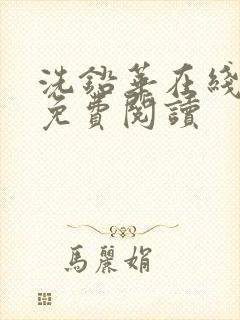 洗鉛華在綫
免費閱讀
馬麗娟